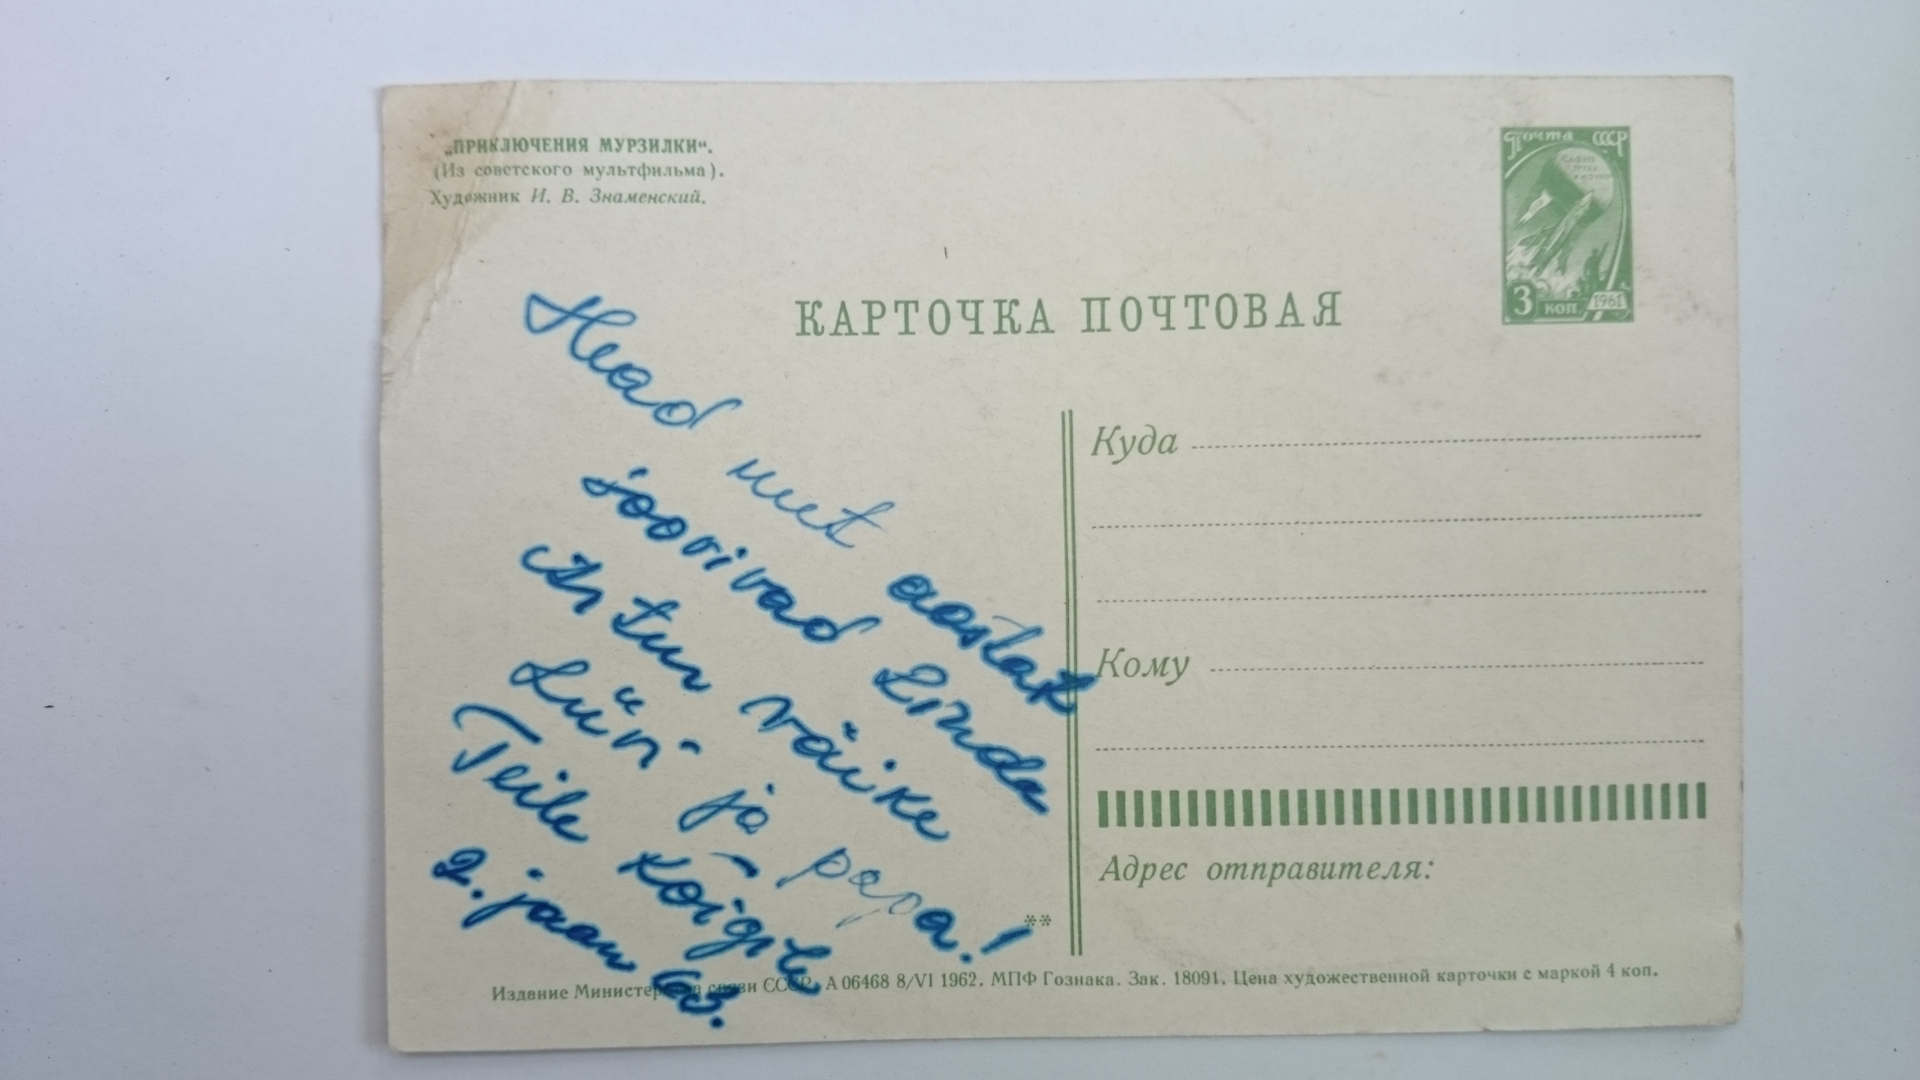 „ПРИКЛЮЧЕНИЯ МУРЗИЛКИ“.
(Из советского мультфильма).
Художник И. В. Знаменский.
Почта СССР
3 коп. 1961
КАРТОЧКА ПОЧТОВАЯ
Head uut aastat
soovivad Linda
Artur väike
Lüüri ja papa!
Teile kõigile
2. jaan 63.
Куда
Кому
Адрес отправителя:
**
Издание Министерства связи СССР. А 06468 8/VI 1962. МПФ Гознака. Зак. 18091. Цена художественной карточки с маркой 4 коп.